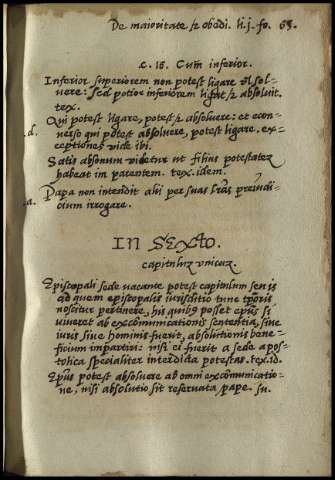 De maioritate et obedi. li. j. fo. 63.
c. 16. Cum inferior.
Inferior superiorem non potest ligare vel sol-
vere: Sed potior inferiorem ligat et absolvit.
tex.
Qui potest ligare, potest et absolvere: et econ-
.d. verso qui potest absolvere, potest ligare. ex-
ceptiones vide ibi.
Satis absonum videtur ut filius potestatez
habeat in parentem. tex. idem.
Papa non intendit alii per suas l̃ras preiudi-
.a. cium irrogare.
IN SEXTO.
capitulu̅z unicu̅z.
Episcopali sede vacante potest capitulum seu is
ad quem episcopalis iurisditio tunc tp̃oris
noscitur pertinere, his quibꝰ posset epũs si
viveret ab excom̃unicationis sententia, sive
iuris sive hominis fuerit, absolutionis bene-
ficium impartiri: nisi ei fuerit a sede apos-
tolica specialiter interdicta potestas. tex. id.
Epũs potest absolvere ab omni excom̃unicatio-
ne, nisi absolutio sit reservata pape. su.